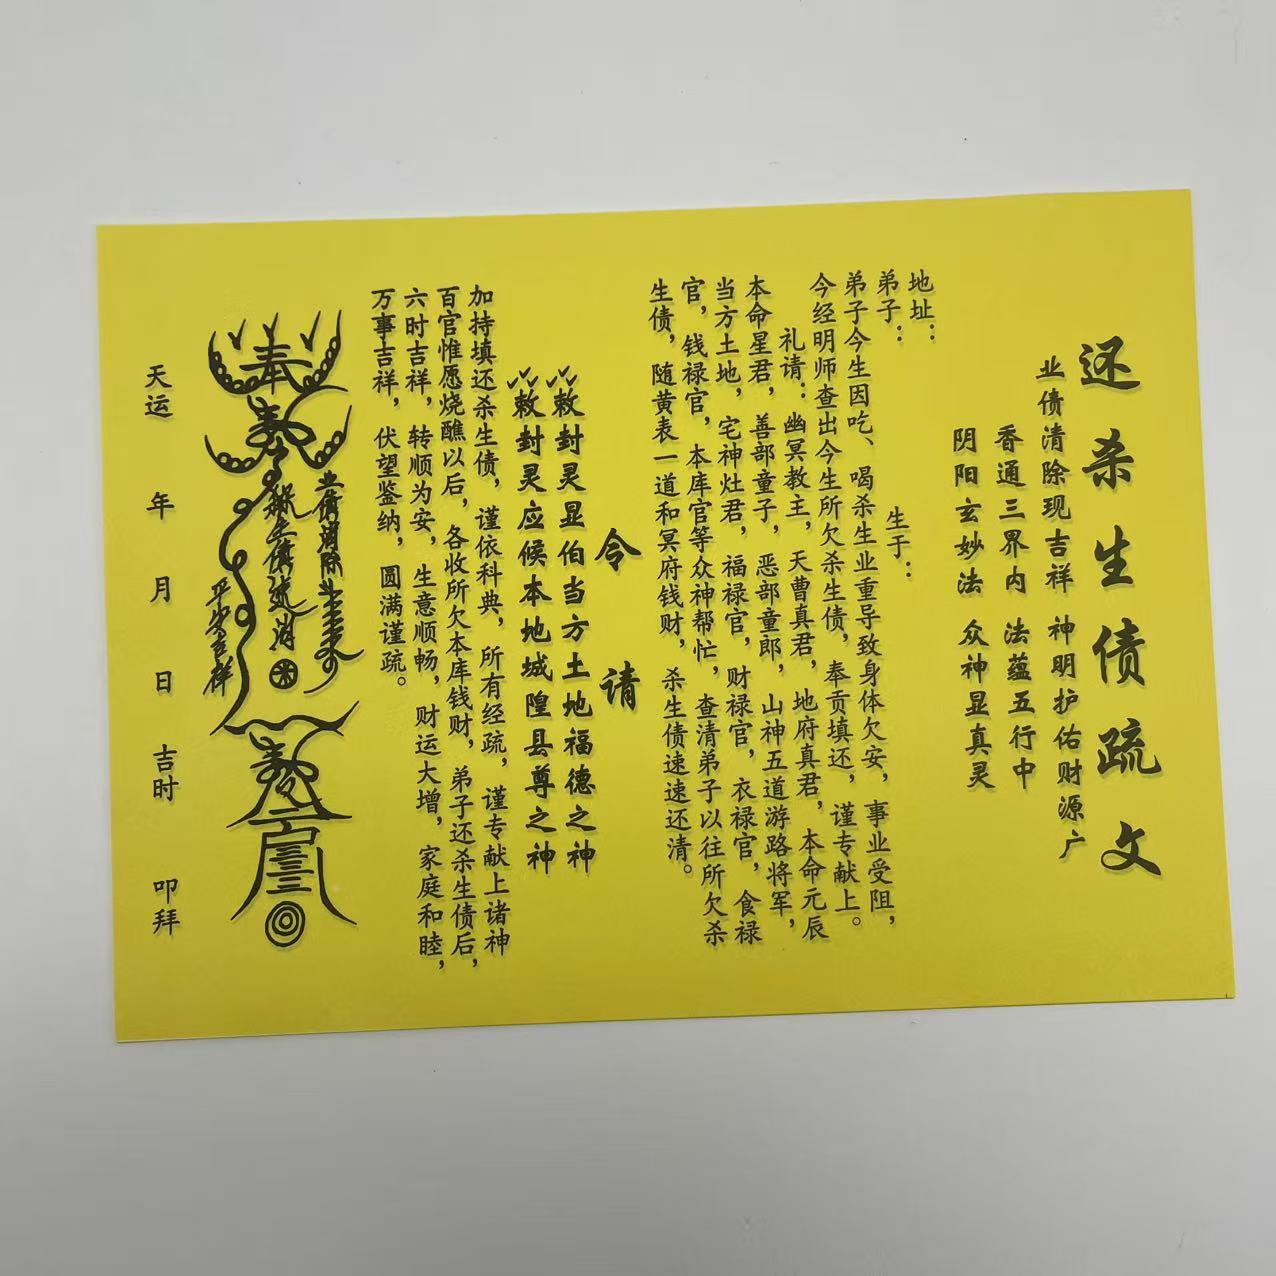 还杀生债疏文
业债清除现吉祥 神明护佑财源广
香通三界内 法蕴五行中
阴阳玄妙法 众神显真灵
地址：
弟子： 生于：
弟子今生因吃、喝杀生业重导致身体欠安，事业受阻，
今经明师查出今生所欠杀生债，奉贡填还，谨专献上。
礼请：幽冥教主，天曹真君，地府真君，本命元辰
本命星君，善部童子，恶部童郎，山神五道游路将军，
当方土地，宅神灶君，福禄官，财禄官，衣禄官，食禄
官，钱禄官，本库官等众神帮忙，查清弟子以往所欠杀
生债，随黄表一道和冥府钱财，杀生债速速还清。
令请
敕封灵显伯当方土地福德之神
敕封灵应候本地城隍县尊之神
加持填还杀生债，谨依科典，所有经疏，谨专献上诸神
百官惟愿烧醮以后，各收所欠本库钱财，弟子还杀生债后，
六时吉祥，转顺为安，生意顺畅，财运大增，家庭和睦，
万事吉祥，伏望鉴纳，圆满谨疏。
奉
业债消除
平安吉祥
天运 年 月 日 吉时 叩拜